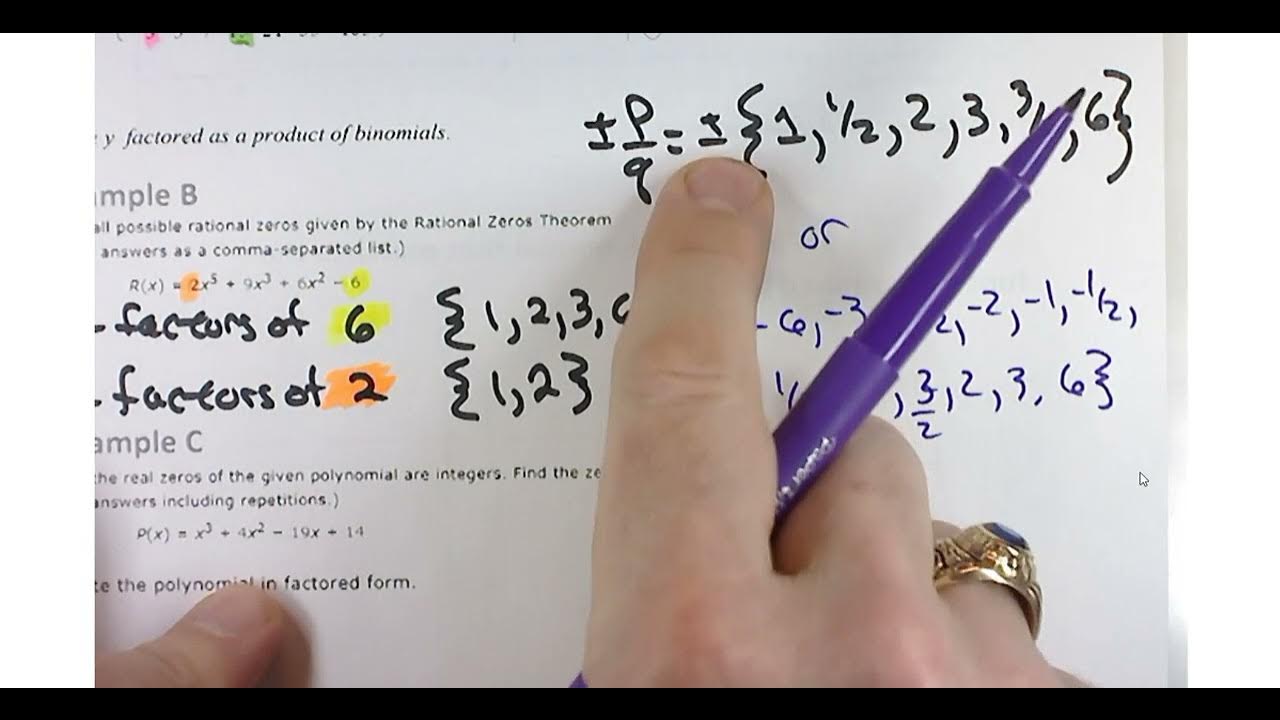 y factored as a product of binomials.
± p/q = ± {1, 1/2, 2, 3, 3/ , 6}
mple B
all possible rational zeros given by the Rational Zeros Theorem
answers as a comma-separated list.)
or
R(x) = 2x⁵ + 9x³ + 6x² − 6
factors of 6 {1, 2, 3, 6
-6, -3, -2, -1, -1/2,
factors of 2 {1, 2}
1/ , 3/2, 2, 3, 6}
ample C
the real zeros of the given polynomial are integers. Find the ze
answers including repetitions.)
P(x) = x³ + 4x² − 19x + 14
te the polynomial in factored form.